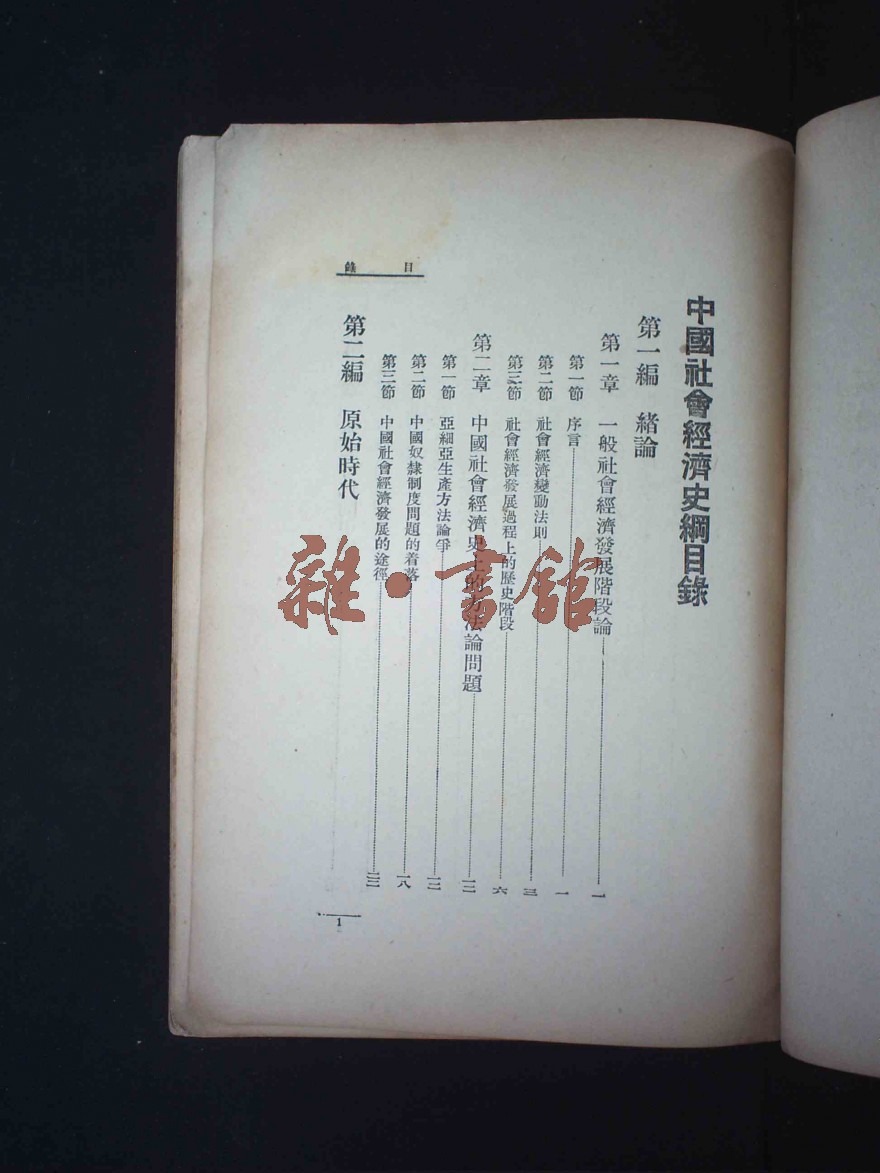 中國社會經濟史綱目錄
第一編 緒論
第一章 一般社會經濟發展階段論 一
第一節 序言 一
第二節 社會經濟變動法則 三
第三節 社會經濟發展過程上的歷史階段 六
第二章 中國社會經濟史上的方法論問題 一二
第一節 亞細亞生產方法論爭 一二
第二節 中國奴隸制度問題的着落 一八
第三節 中國社會經濟發展的途徑
第二編 原始時代
目錄
1
雜·書館